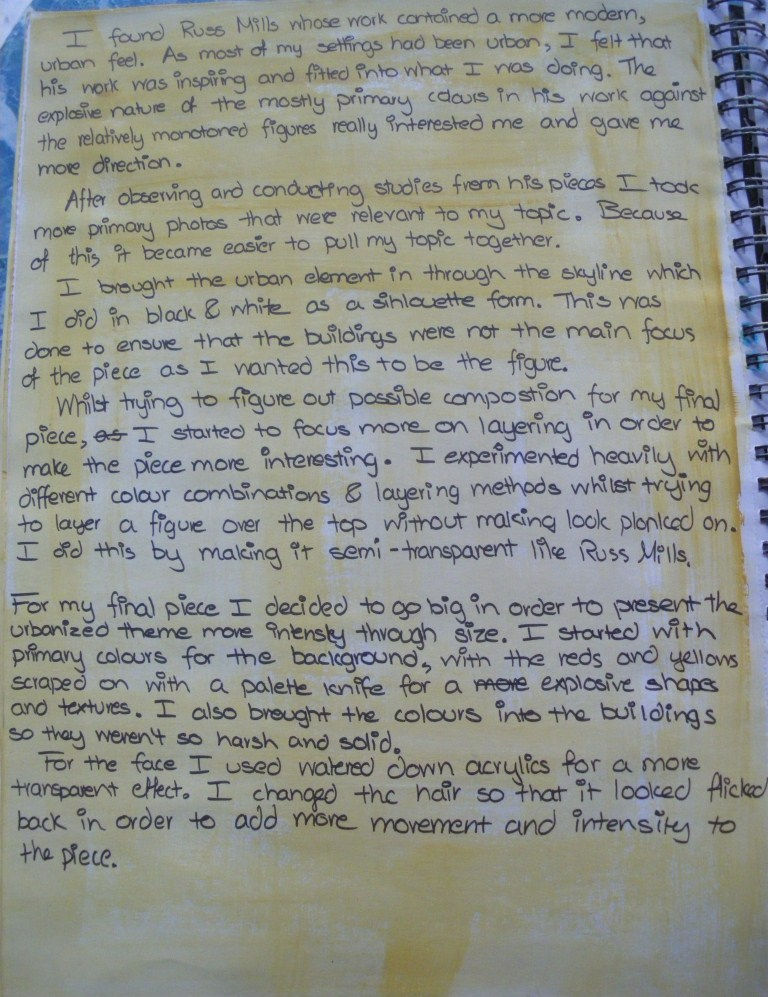 I found Russ Mills whose work contained a more modern,
urban feel. As most of my settings had been urban, I felt that
his work was inspiring and fitted into what I was doing. The
explosive nature of the mostly primary colours in his work against
the relatively monotoned figures really interested me and gave me
more direction.
After observing and conducting studies from his pieces I took
more primary photos that were relevant to my topic. Because
of this it became easier to pull my topic together.
I brought the urban element in through the skyline which
I did in black & white as a sihlouette form. This was
done to ensure that the buildings were not the main focus
of the piece as I wanted this to be the figure.
Whilst trying to figure out possible compostion for my final
piece, as I started to focus more on layering in order to
make the piece more interesting. I experimented heavily with
different colour combinations & layering methods whilst trying
to layer a figure over the top without making look plonked on.
I did this by making it semi-transparent like Russ Mills.
For my final piece I decided to go big in order to present the
urbanized theme more intensly through size. I started with
primary colours for the background, with the reds and yellows
scraped on with a palette knife for a more explosive shapes
and textures. I also brought the colours into the buildings
so they weren't so harsh and solid.
For the face I used watered down acrylics for a more
transparent effect. I changed the hair so that it looked flicked
back in order to add more movement and intensity to
the piece.